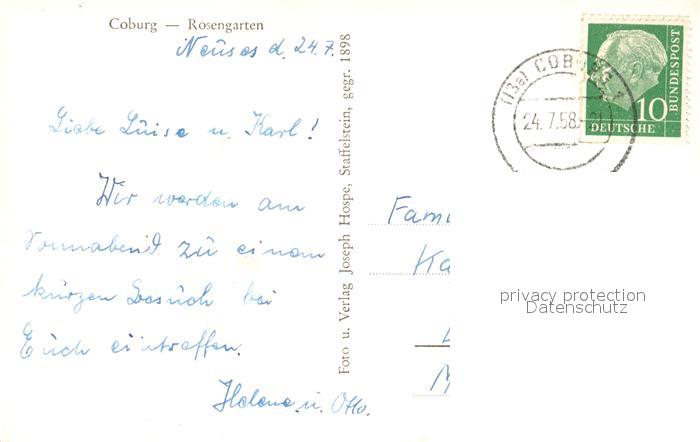 Coburg — Rosengarten
Neuses d. 24.7.
Liebe Luise u. Karl!
Wir werden am
Sonnabend zu einem
kurzen Besuch bei
Euch eintreffen.
Helene u. Otto.
Foto u. Verlag Joseph Hospe, Staffelstein, gegr. 1898
(13a) COBURG 1
24.7.58
10
DEUTSCHE
BUNDESPOST
Fami
Ka
privacy protection
Datenschutz